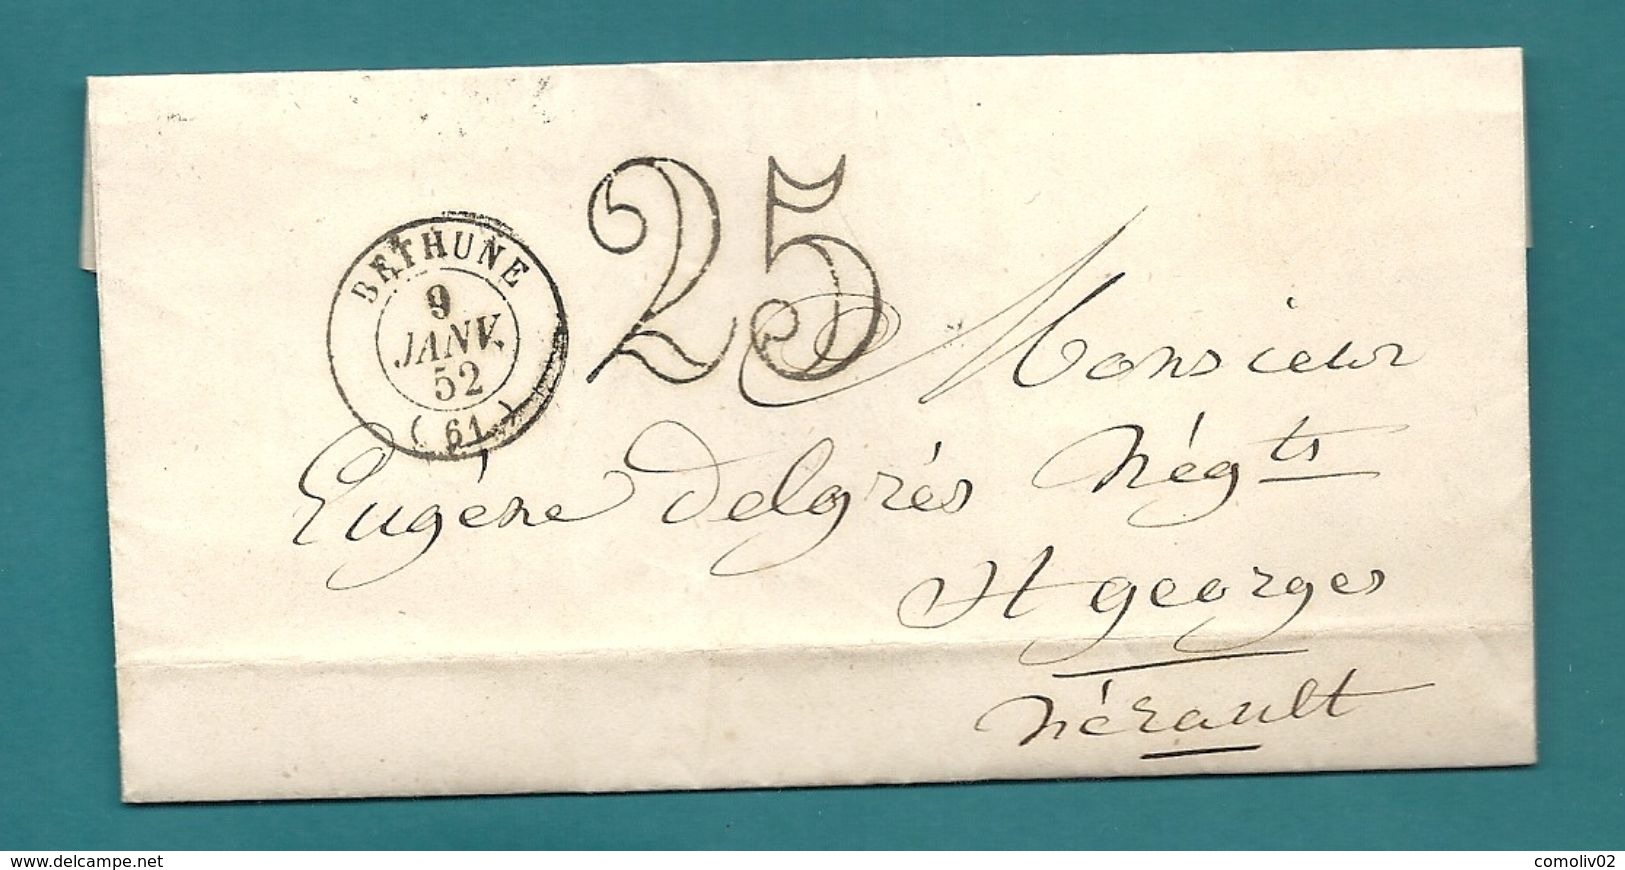 BETHUNE
9
JANV.
52
(61)
25
Monsieur
Eugéne Delgrés Négts
St georges
hérault
www.delcampe.net
comoliv02